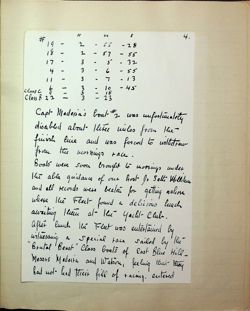 # H M S 4.
19 - 2 - 55 - 28
18 - 2 - 57 - 55
17 - 3 - 5 - 32
4 - 3 - 6 - 55
11 - 3 - 7 - 13
6 - 3 - 10 - 45
Class B 22 - 3 - 23
Capt Maderia's boat #2 was unfortunately
disabled about three miles from the
finish line and was forced to withdraw
from this mornings race.
Boats were soon brought to moorings under
the able guidance of our host
and all records were beaten for getting ashore
where the Fleet found a delicious lunch
awaiting them at the Yacht Club.
After lunch the Fleet was entertained by
witnessing a special race sailed by the
"Brutal Beast" Class boats of East Blue Hill -
Messrs Maderia and Watson, feeling that they
had not had their fill of racing, entered